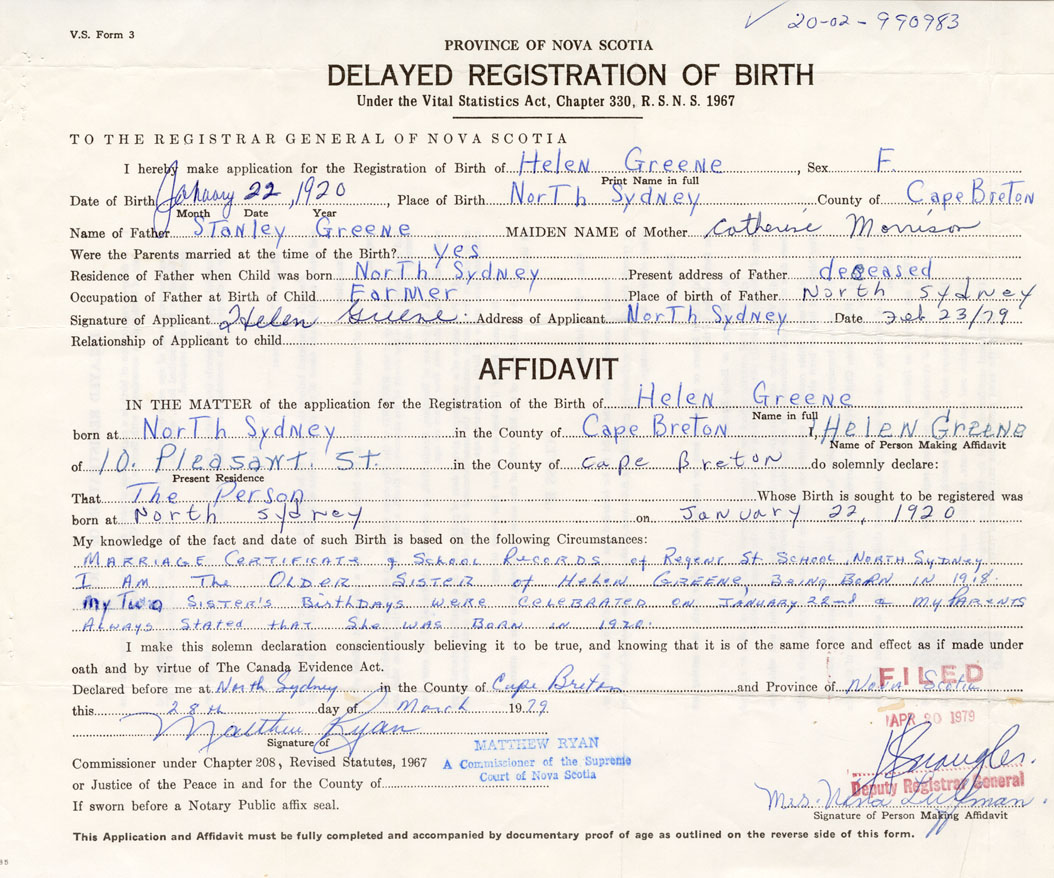 V.S. Form 3
✓ 20-02-990983
PROVINCE OF NOVA SCOTIA
DELAYED REGISTRATION OF BIRTH
Under the Vital Statistics Act, Chapter 330, R. S. N. S. 1967
TO THE REGISTRAR GENERAL OF NOVA SCOTIA
I hereby make application for the Registration of Birth of Helen Greene, Sex F.
Print Name in full
Date of Birth January 22, 1920, Place of Birth North Sydney, County of Cape Breton
Month Date Year
Name of Father Stanley Greene MAIDEN NAME of Mother Catherine Morrison
Were the Parents married at the time of the Birth? yes
Residence of Father when Child was born North Sydney Present address of Father deceased
Occupation of Father at Birth of Child Farmer Place of birth of Father North Sydney
Signature of Applicant Helen Greene. Address of Applicant North Sydney Date Feb 23/79
Relationship of Applicant to child
AFFIDAVIT
IN THE MATTER of the application for the Registration of the Birth of Helen Greene
Name in full
born at North Sydney in the County of Cape Breton I, Helen Greene
Name of Person Making Affidavit
of 10. Pleasant. St. in the County of Cape Breton do solemnly declare:
Present Residence
That The Person Whose Birth is sought to be registered was
born at North Sydney on January 22, 1920
My knowledge of the fact and date of such Birth is based on the following Circumstances:
Marriage Certificate & School Records of Regent St. School North Sydney
I am the older sister of Helen Greene, being born in 1918.
My Two Sister's Birthdays were celebrated on January 22nd & my Parents
Always stated that she was born in 1920.
I make this solemn declaration conscientiously believing it to be true, and knowing that it is of the same force and effect as if made under
oath and by virtue of The Canada Evidence Act.
Declared before me at North Sydney in the County of Cape Breton and Province of Nova Scotia
FILED
this 28th day of March 1979
APR 20 1979
Matthew Ryan
Signature of
MATTHEW RYAN
A Commissioner of the Supreme
Court of Nova Scotia
Commissioner under Chapter 208, Revised Statutes, 1967
or Justice of the Peace in and for the County of
Deputy Registrar General
If sworn before a Notary Public affix seal.
Mrs. Nina
Signature of Person Making Affidavit
This Application and Affidavit must be fully completed and accompanied by documentary proof of age as outlined on the reverse side of this form.